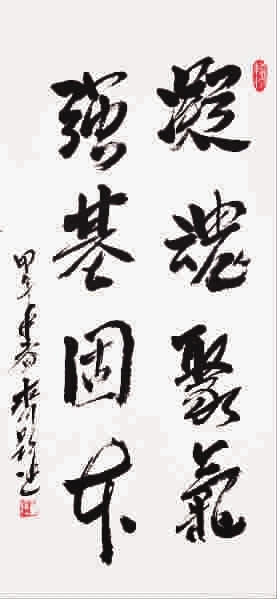 凝魂聚氣
强基固本
甲午春